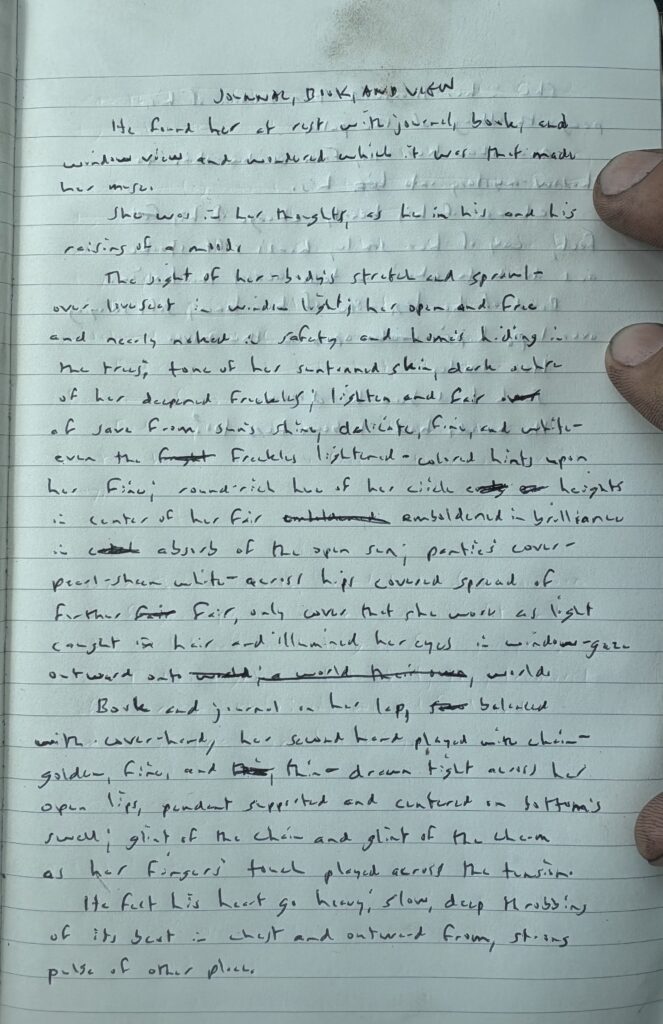 JOURNAL, BOOK, AND VIEW
He found her at rest with journal, book, and
window view and wondered which it was that made
her muse.
She was in her thoughts, as he in his and his
raising of a mood.
The sight of her-body's stretch and sprawl-
over loveseat in window light; her open and free
and nearly naked in safety and home's hiding in
the trees; tone of her suntanned skin, dark ochre
of her deepened freckles; lighten and fair
of save from sun's shine, delicate, fine, and white-
even the freckles lightened-colored hints upon
her fine; round-rich hue of her circle heights
in center of her fair emboldened in brilliance
in absorb of the open sun; panties' cover-
pearl-sheen white-across hips covered spread of
further fair, only cover that she wore as light
caught in hair and illumined her eyes in window-gaze
outward onto world; a world their own, worlds
Book and journal on her lap, balanced
with cover-hand, her second hand played with chain-
golden, fine, and thin-drawn tight across her
open lips, pendant supported and centered on bottom's
swell; glint of the chain and glint of the charm
as her fingers' touch played across the tension.
He felt his heart go heavy; slow, deep throbbing
of its beat in chest and outward from, strong
pulse of other place.